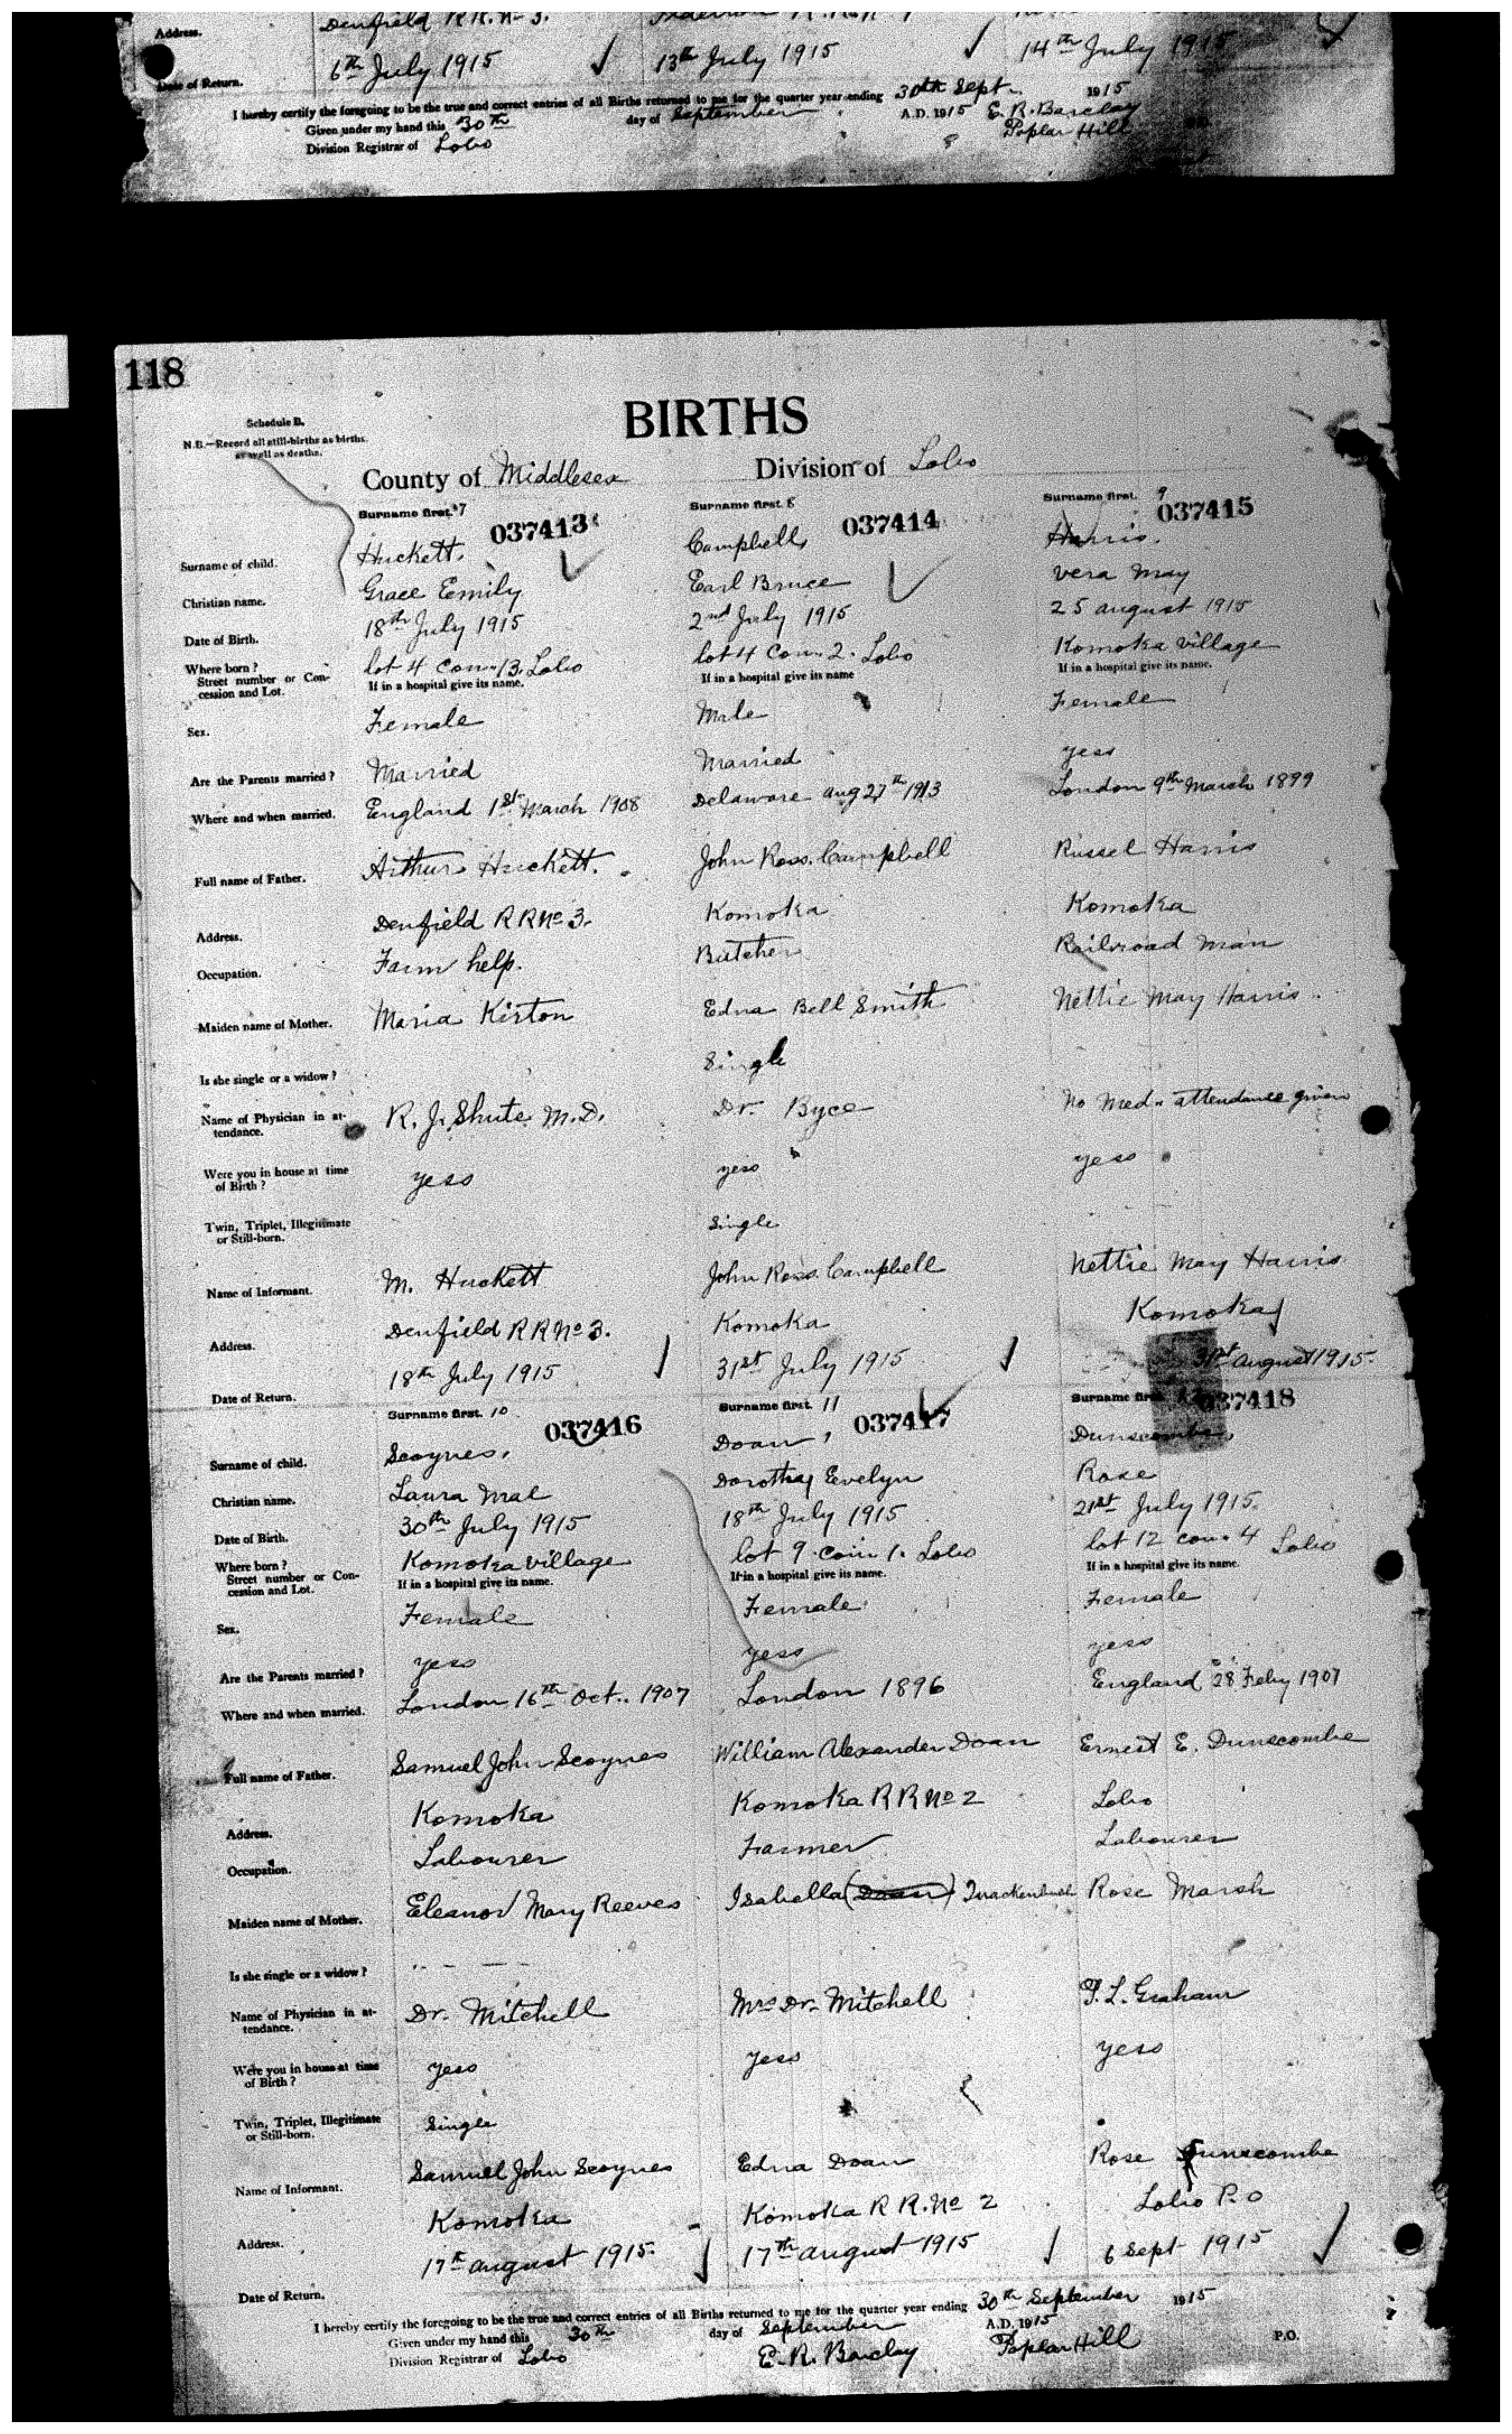 Address. Denfield R R. No 3.
Date of Return. 6th July 1915 13th July 1915 14th July 1915
I hereby certify the foregoing to be the true and correct entries of all Births returned to me for the quarter year ending 30th Sept. 1915
Given under my hand this 30th day of September A.D. 1915 E. R. Barclay
Division Registrar of Lobo Poplar Hill
118
Schedule B.
N.B.—Record all still-births as births as well as deaths.
BIRTHS
County of Middlesex Division of Lobo
Surname first. 7 Surname first. 8 Surname first. 9
037413 037414 037415
Surname of child. Huckett. Campbell, Harris.
Christian name. Grace Emily Earl Bruce Vera May
Date of Birth. 18th July 1915 2nd July 1915 25 august 1915
Where born? Street number or Concession and Lot. lot 4 con. 13. Lobo lot 4 Con. 2. Lobo Komoka Village
If in a hospital give its name. If in a hospital give its name If in a hospital give its name.
Sex. Female Male Female
Are the Parents married? Married Married yess
Where and when married. England 1st March 1908 Delaware aug 27th 1913 London 9th March 1899
Full name of Father. Arthur Huckett. John Ross. Campbell Russel Harris
Address. Denfield R R No 3. Komoka Komoka
Occupation. Farm help. Butcher Railroad man
Maiden name of Mother. Maria Kirton Edna Bell Smith Nettie May Harris.
Is she single or a widow? Single
Name of Physician in attendance. R. J. Shute M.D. Dr. Byce No Med. attendance given
Were you in house at time of Birth? yess yess yess
Twin, Triplet, Illegitimate or Still-born. Single
Name of Informant. M. Huckett John Ross. Campbell Nettie May Harris
Address. Denfield R R No 3. Komoka Komoka
Date of Return. 18th July 1915 31st July 1915 31st august 1915.
Surname first. 10 Surname first. 11 Surname first.
037416 037417 037418
Surname of child. Scoynes. Doan, Dunscombe,
Christian name. Laura Mae Dorothy Evelyn Rose
Date of Birth. 30th July 1915 18th July 1915 21st July 1915.
Where born? Street number or Concession and Lot. Komoka Village lot 9 con. 1. Lobo lot 12 con. 4 Lobo
If in a hospital give its name. If in a hospital give its name. If in a hospital give its name.
Sex. Female Female Female
Are the Parents married? yess yess yess
Where and when married. London 16th Oct. 1907 London 1896 England 28 Feby 1907
Full name of Father. Samuel John Scoynes William Alexander Doan Ernest E. Dunscombe
Address. Komoka Komoka R R No 2 Lobo
Occupation. Labourer Farmer Labourer
Maiden name of Mother. Eleanor Mary Reeves Isabella (Doan) Quackenbush Rose Marsh
Is she single or a widow? - - - -
Name of Physician in attendance. Dr. Mitchell Mrs Dr. Mitchell T. L. Graham
Were you in house at time of Birth? yess yess yess
Twin, Triplet, Illegitimate or Still-born. Single
Name of Informant. Samuel John Scoynes Edna Doan Rose Dunscombe
Address. Komoka Komoka R R. No 2 Lobo P.O
Date of Return. 17th august 1915. 17th august 1915 6 Sept 1915
I hereby certify the foregoing to be the true and correct entries of all Births returned to me for the quarter year ending 30th September 1915
Given under my hand this 30th day of September A.D. 1915
Division Registrar of Lobo E. R. Barclay Poplar Hill P.O.